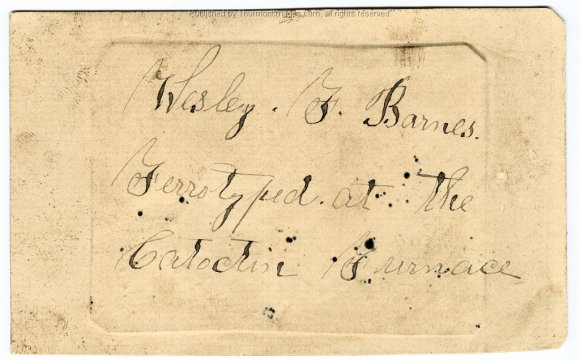 Published by Thurmontimages.com, all rights reserved
Wesley. F. Barnes.
Ferrotyped. at. the
Catoctin Furnace